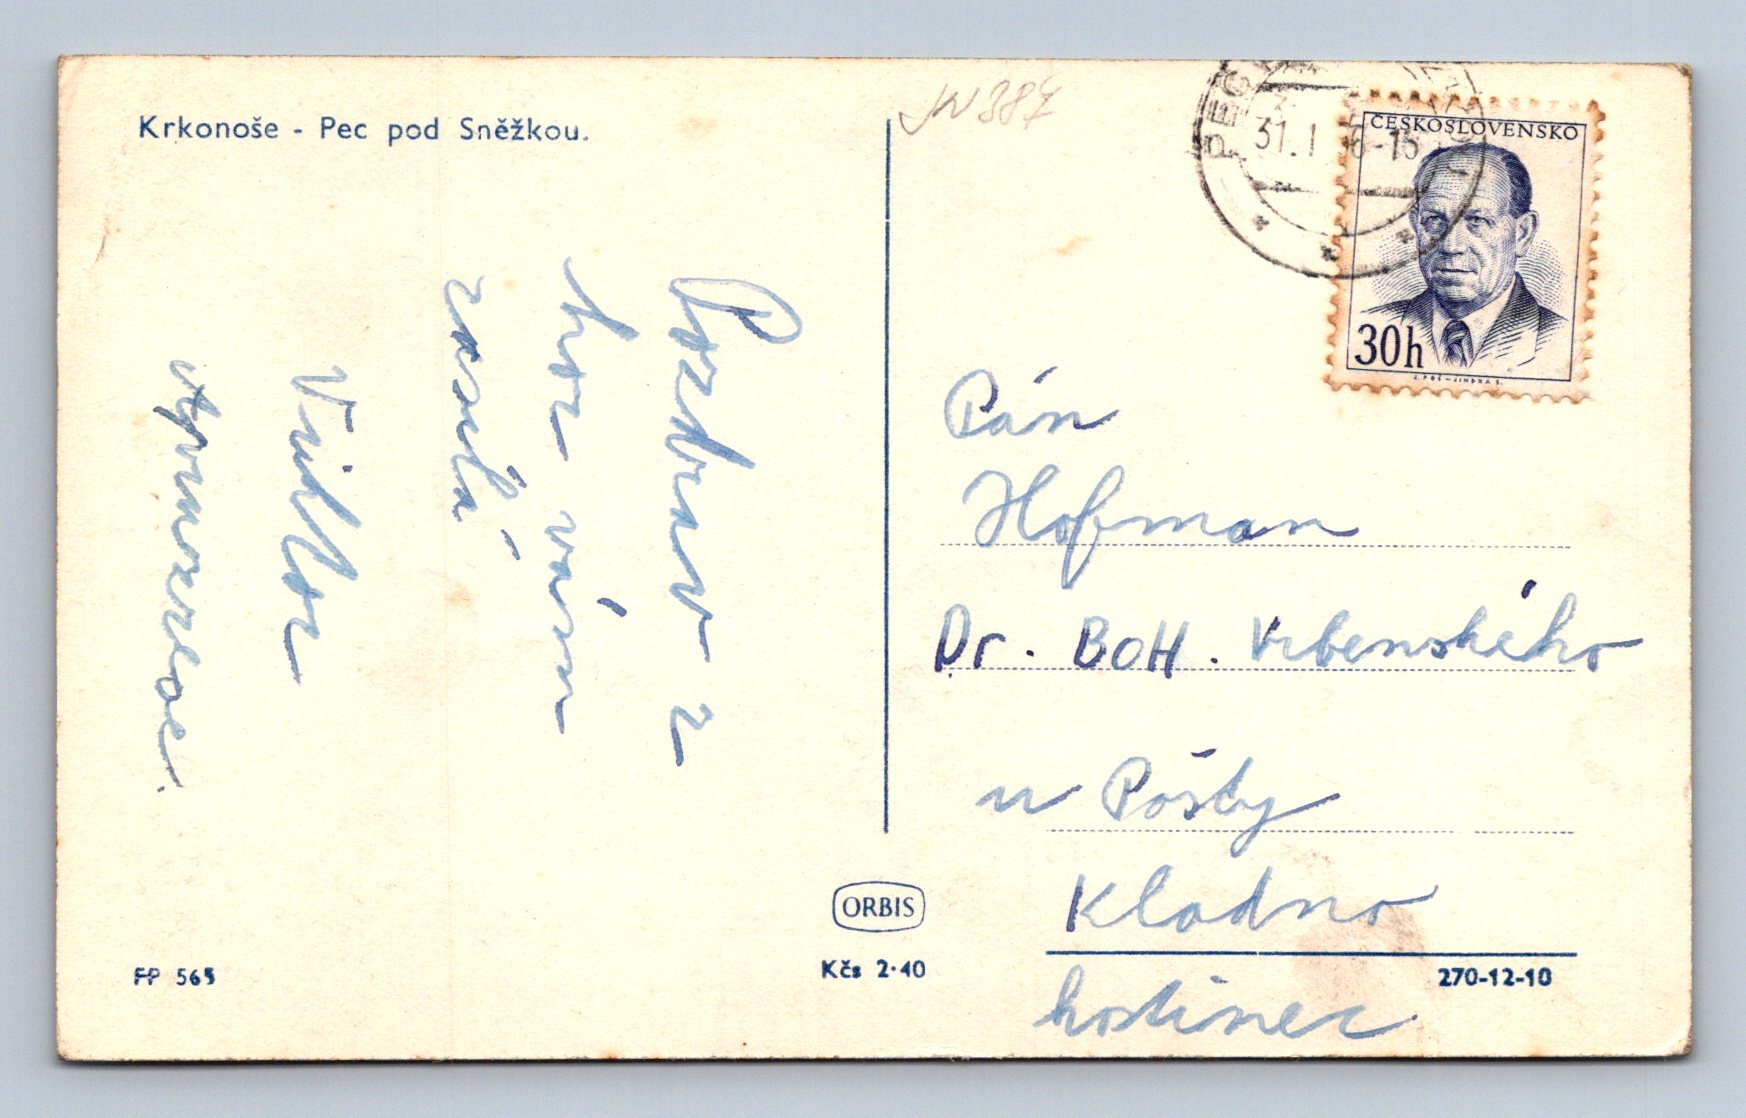 Krkonoše - Pec pod Sněžkou.
JN 387
31.1 6-15
ČESKOSLOVENSKO
30h
J. POŠ - JINDRA S.
Pozdrav z
hor vám
zasílá
Viktor
Pán
Hofman
Dr. BOH. Vrbenského
u Pošty
Kladno
hostinec
ORBIS
Kčs 2·40
FP 565
270-12-10